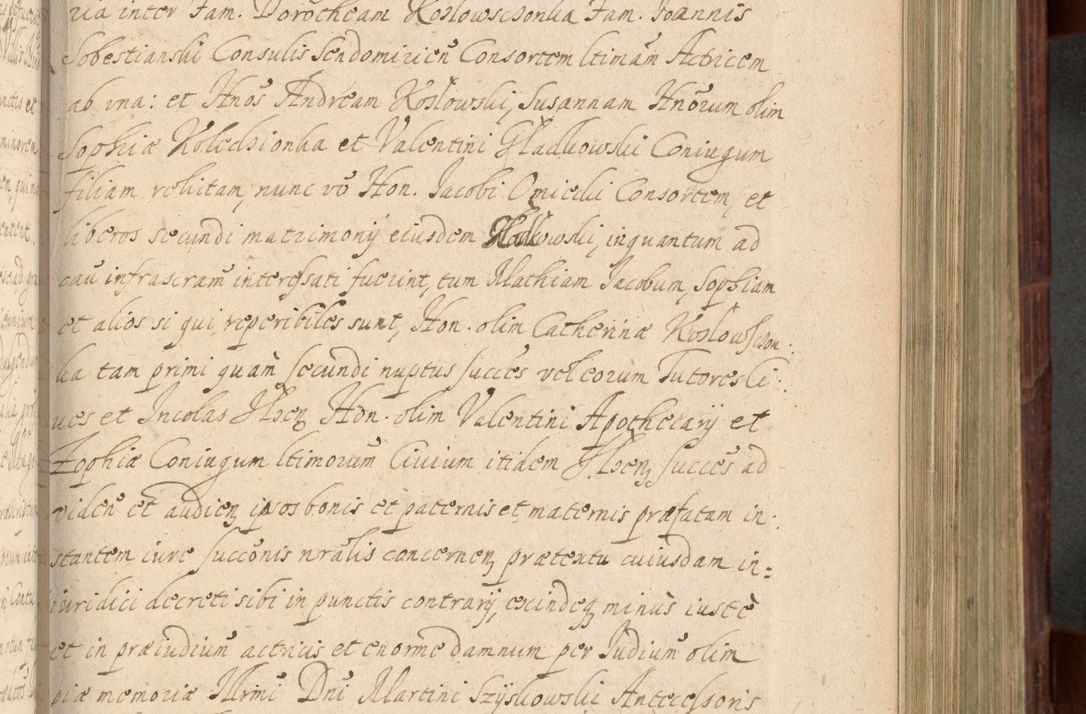 ria inter Fam. Dorotheam Kozlowsczonka Fam. Joannis
Sobestianski Consulis Sendomirien̄ Consortem ltimam̄ Actricem
ab vna: et Hnos̄ Andream Kozlowski, Susannam Hnōrum olim
Sophiæ Kolechionka et Valentini Gładkowski Coniugum
filiam relictam, nunc vō Hon. Jacobi Omiecki Consortem, et
liberos secundi matrimonÿ eiusdem Gładkowski, inquantum ad
cau infrascram̄ interessati fuerint, tum Mathiam Jacobum, Sophiam
et alios si qui reperibiles sunt, Hon. olim Catherinæ Kozlowscon:
ka tam primi quam̄ secundi nuptus succēs vel eorum Tutores Ci:
ues et Incolas Ilzen̄ Hon. olim Valentini Apothecarÿ et
Zophiæ Coniugum ltimorum̄ Ciuium itidem Ilzen̄ succēs ad
viden̄ et audien̄ ipsos bonis et paternis et maternis præfatam in:
stantem iure succōnis nrālis concernen̄ prætextu cuiusdam in=
iuridici decreti sibi in punctis contrarÿ, exindeq minus iustè
et in præiudium̄ actricis et enorme damnum per Iudium̄ olim
piæ memoriæ Illrmi Dni Martini Szyszkowski Antecessoris